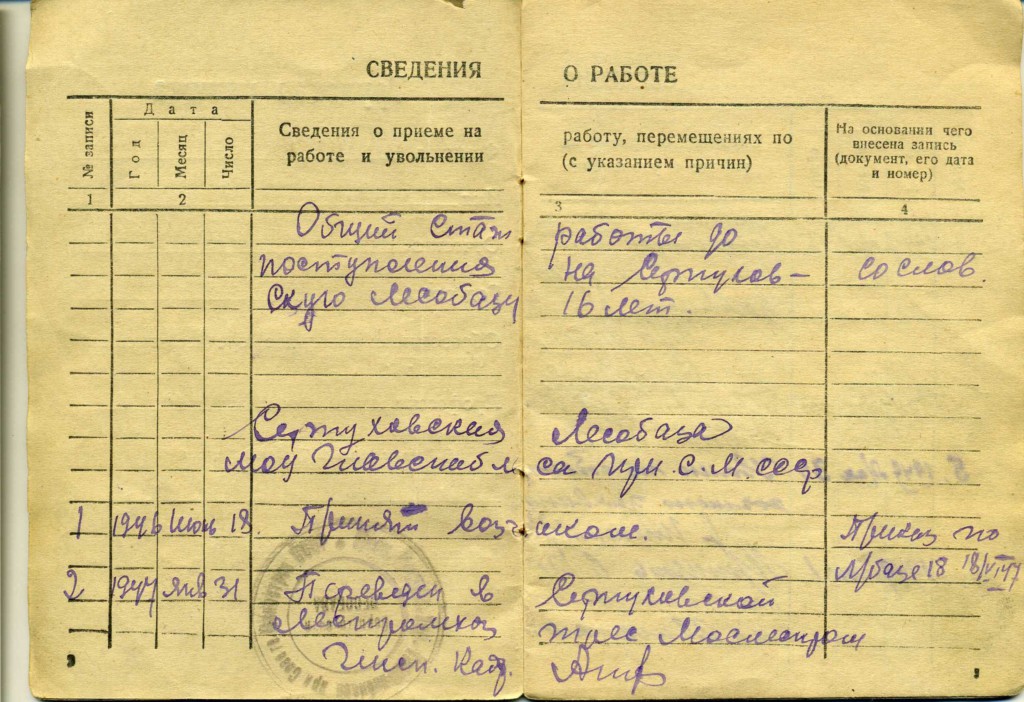 СВЕДЕНИЯ О РАБОТЕ
№ записи
Дата
Год
Месяц
Число
Сведения о приеме на работу, перемещениях по
работе и увольнении (с указанием причин)
На основании чего
внесена запись
(документ, его дата
и номер)
1 2 3 4
Общий стаж работы до
поступления на Серпухов-
скую Лесобазу 16 лет.
со слов.
Серпуховская Лесобаза
МОУ Главснабл са при С.М. СССР
1 1946 Июнь 18. Принят возчиком. Приказ по
Л/базе 18 18/VI 47
2 1947 янв 31 Переведен в Серпуховской
Леспромхоз трес Мосместпром
Инсп. Кадр.